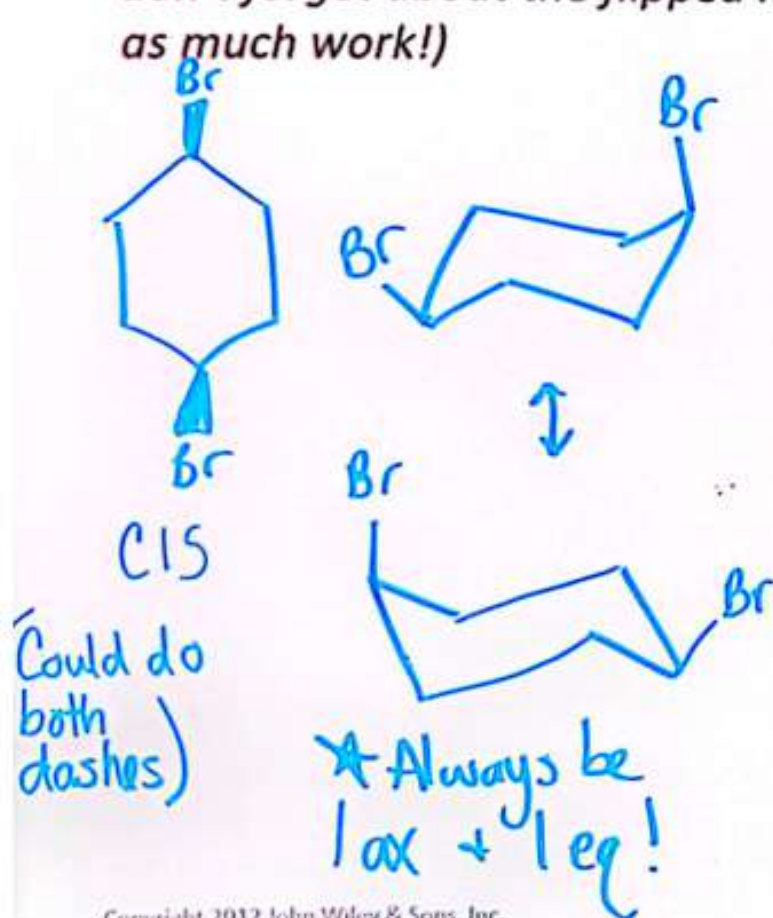 as much work!)
Br
Br
Br
Br
Br
Br
CIS
(Could do
both
dashes)
* Always be
1 ax + 1 eq!
Copyright 2012 John Wiley & Sons, Inc